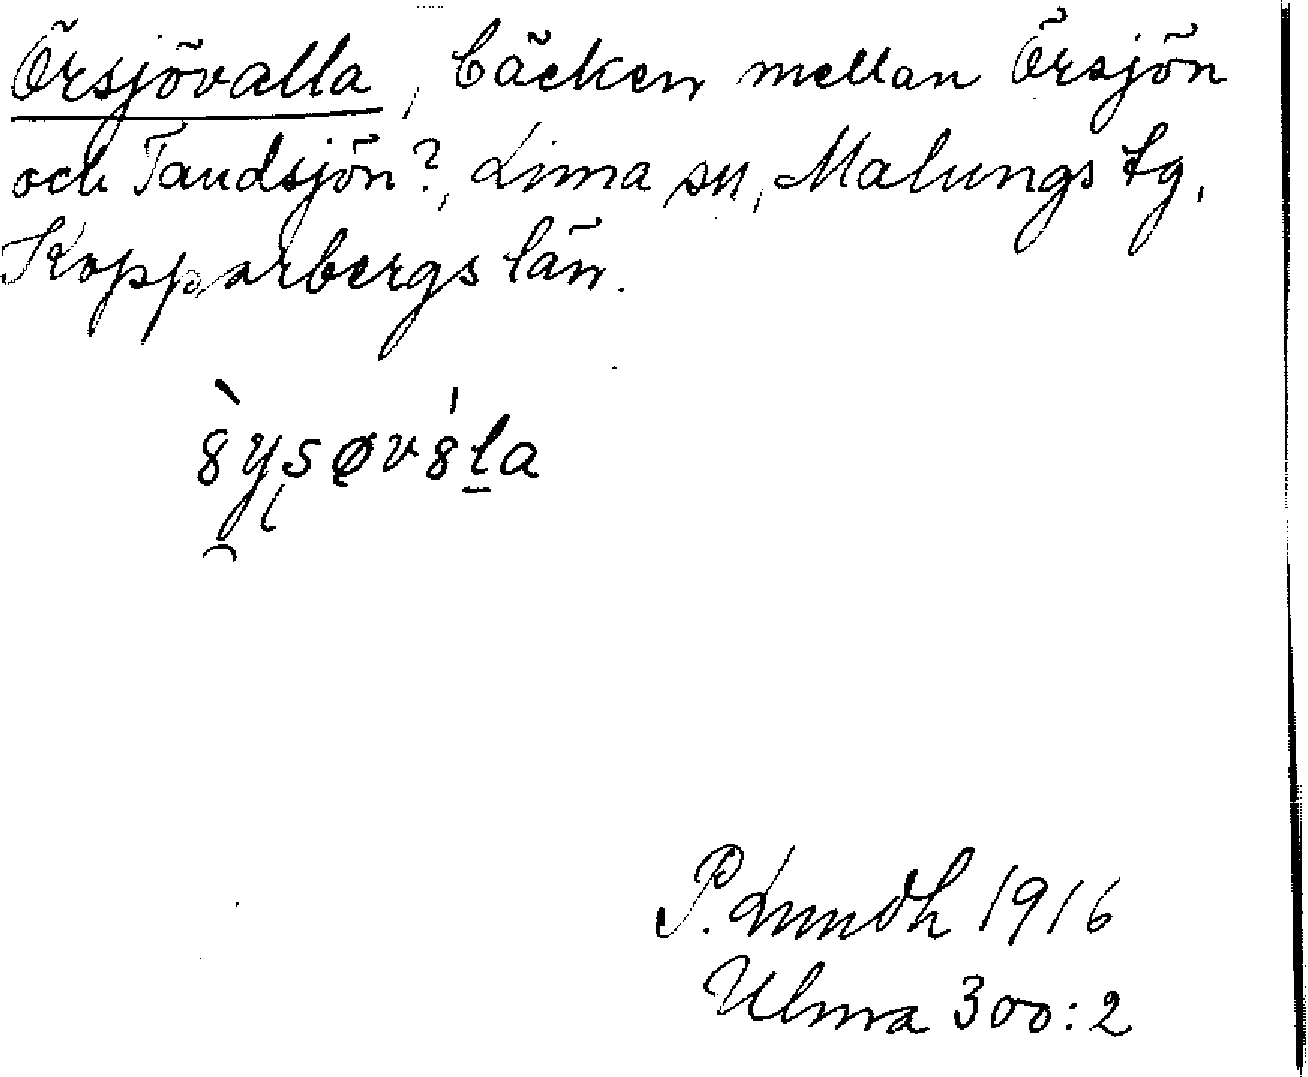 Örsjövalla, bäcken mellan Örsjön
och Tandsjön?, Lima sn, Malungs tg,
Kopparbergs län.
P. Lundh 1916
Ulma 300:2